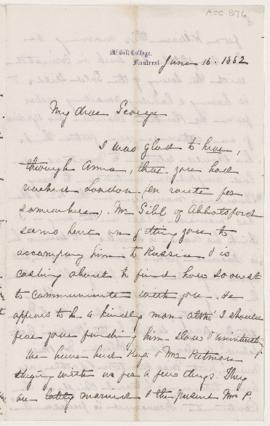 Acc 876
McGill College,
Montreal June 16. 1882
My dear George
I was glad to hear,
through Anna, that you had
reached London en route for
somewhere. Mr Gibb of Abbotsford
seems bent on getting you to
accompany him to Russia & is
casting about to find how soonest
to communicate with you. He
appears to be a kindly man & I should
fear your finding him slow &
We have had Revd & Mrs Pitman
staying with us for a few days. They
are lately married & the present Mrs P.